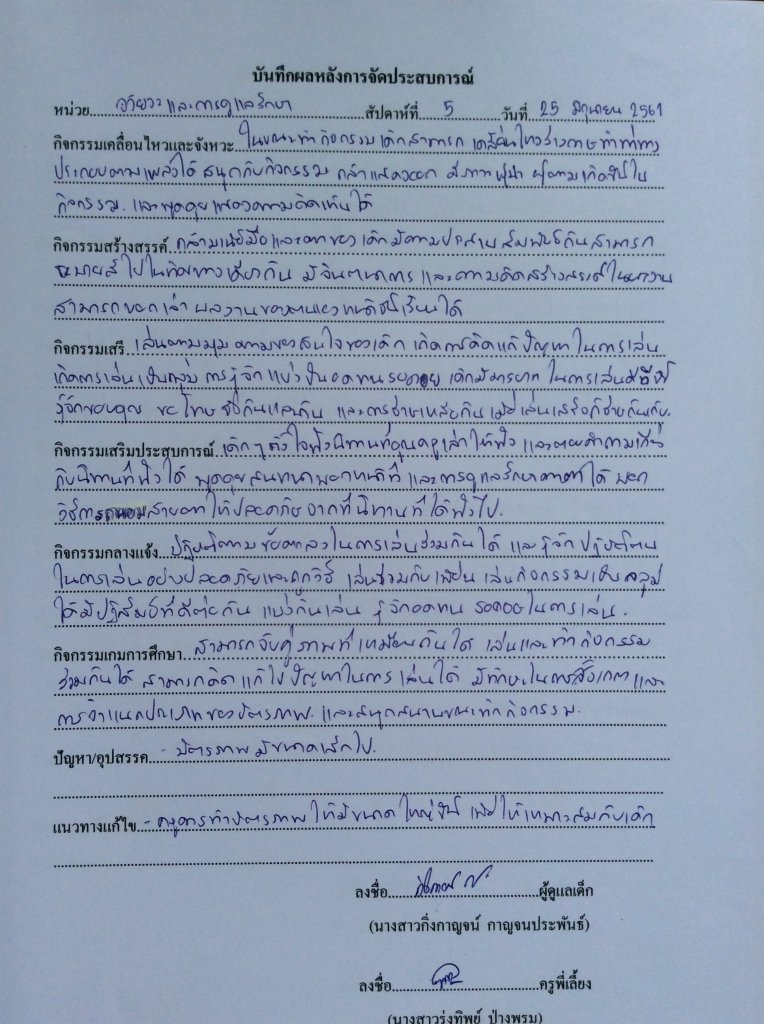 บันทึกผลหลังการจัดประสบการณ์
หน่วย อวัยวะและการดูแลรักษา สัปดาห์ที่ 5 วันที่ 25 มิถุนายน 2561
กิจกรรมเคลื่อนไหวและจังหวะ ในขณะทำกิจกรรมเด็กสามารถเคลื่อนไหวร่างกายทำท่าทาง
ประกอบตามเพลงได้ สนุกกับกิจกรรม กล้าแสดงออก มีภาวะผู้นำ ผู้ตามเกิดขึ้นใน
กิจกรรม และพูดคุยแสดงความคิดเห็นได้
กิจกรรมสร้างสรรค์ กล้ามเนื้อมือและตาของเด็กมีความประสานสัมพันธ์กันสามารถ
ระบายสีไปในทิศทางเดียวกัน มีจินตนาการ และความคิดสร้างสรรค์ในผลงาน
สามารถบอกเล่าผลงานของตนเองหน้าชั้นเรียนได้
กิจกรรมเสรี เล่นตามมุมตามของสนใจของเด็ก เกิดการคิดแก้ปัญหาในการเล่น
เกิดการเล่นเป็นกลุ่ม การรู้จักแบ่งปันอดทนรอคอย เด็กมีมารยาทในการเล่น
รู้จักขอบคุณ ขอโทษซึ่งกันและกัน และการช่วยเหลือกัน เมื่อเล่นเสร็จก็ช่วยกันเก็บ
กิจกรรมเสริมประสบการณ์ เด็กๆตั้งใจฟังนิทานที่คุณครูเล่าให้ฟัง และตอบคำถามเกี่ยว
กับนิทานที่ฟังได้ พูดคุยสนทนาบอกหน้าที่ และการดูแลรักษาตาได้ บอก
วิธีการถนอมสายตาให้ปลอดภัยจากที่นิทานที่ได้ฟังไป.
กิจกรรมกลางแจ้ง ปฏิบัติตามข้อตกลงในการเล่นร่วมกันได้ และรู้จักปฏิบัติตน
ในการเล่นอย่างปลอดภัยและถูกวิธี เล่นร่วมกับเพื่อน เล่นกิจกรรมเป็นกลุ่ม
ได้มีปฏิสัมพันธ์ที่ดีต่อกัน แบ่งกันเล่น รู้จักอดทน รอคอยในการเล่น.
กิจกรรมเกมการศึกษา สามารถจับคู่ภาพที่เหมือนกันได้ เล่นและทำกิจกรรม
ร่วมกันได้ สามารถคิดแก้ไขปัญหาในการเล่นได้ มีทักษะในการสังเกตและ
การจำแนกประเภทของบัตรภาพ และสนุกสนานขณะทำกิจกรรม.
ปัญหา/อุปสรรค - บัตรภาพมีขนาดเล็กไป.
แนวทางแก้ไข - ครูควรทำบัตรภาพให้มีขนาดใหญ่ขึ้น เพื่อให้เหมาะสมกับเด็ก
ลงชื่อ ผู้ดูแลเด็ก
(นางสาวกิ่งกาญจน์ กาญจนประพันธ์)
ลงชื่อ ครูพี่เลี้ยง
(นางสาวรุ่งทิพย์ ปางพรม)